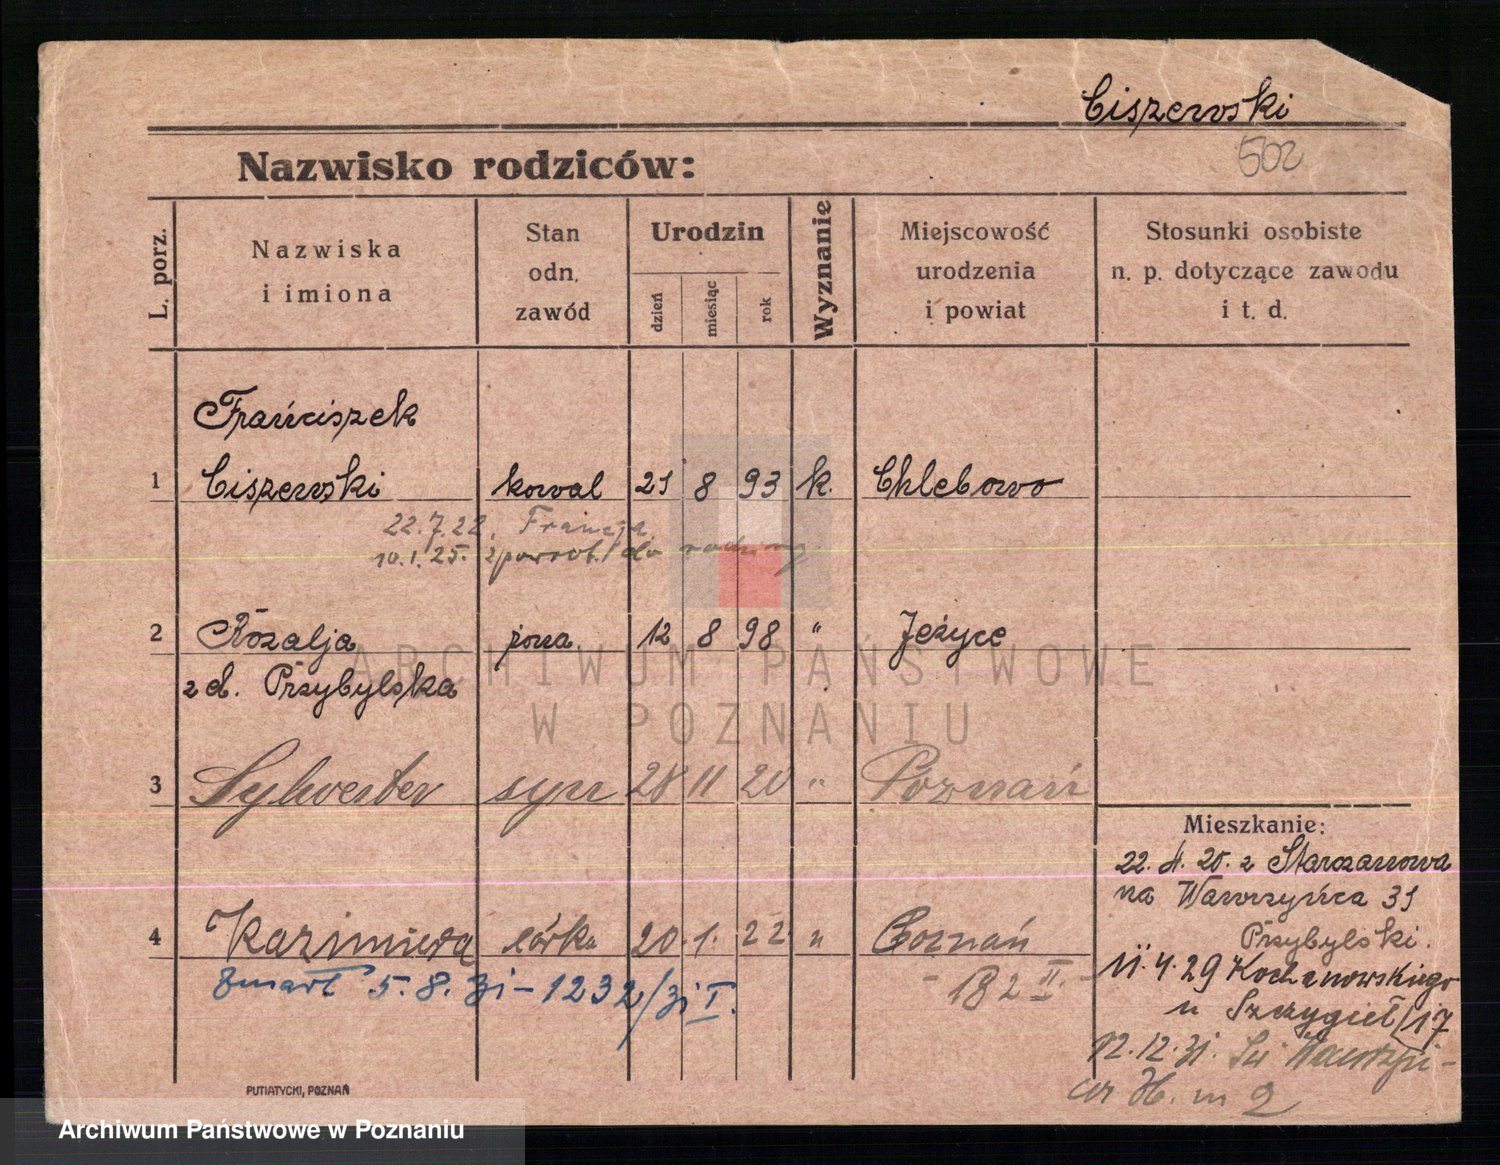 Ciszewski
502
Nazwisko rodziców:
L. porz.
Nazwiska
i imiona
Stan
odn.
zawód
Urodzin
dzień
miesiąc
rok
Wyznanie
Miejscowość
urodzenia
i powiat
Stosunki osobiste
n. p. dotyczące zawodu
i t. d.
Franciszek
1 Ciszewski kowal 21 8 93 k. Chlebowo
22.7.22. Francja
10.1.25. z powrot. do rodziny
2 Rozalja żona. 12 8 98 " Jeżyce
z d. Przybylska
ARCHIWUM PAŃSTWOWE
W POZNANIU
3 Sylwester syn 28 11 20 " Poznań
Mieszkanie:
22. 4. 20. z Starzanowa
na Wawrzyńca 31
Przybylski.
4 Kazimiera córka 20. 1. 22 " Poznań
- 182 II. -
zmarł 5. 8. 31 - 1232/31 I.
11. 4. 29 Kochanowskiego
u Szczygieł 17
12. 12. 31. Św Wawrzyń-
ca
m 2
PUTIATYCKI, POZNAŃ
Archiwum Państwowe w Poznaniu